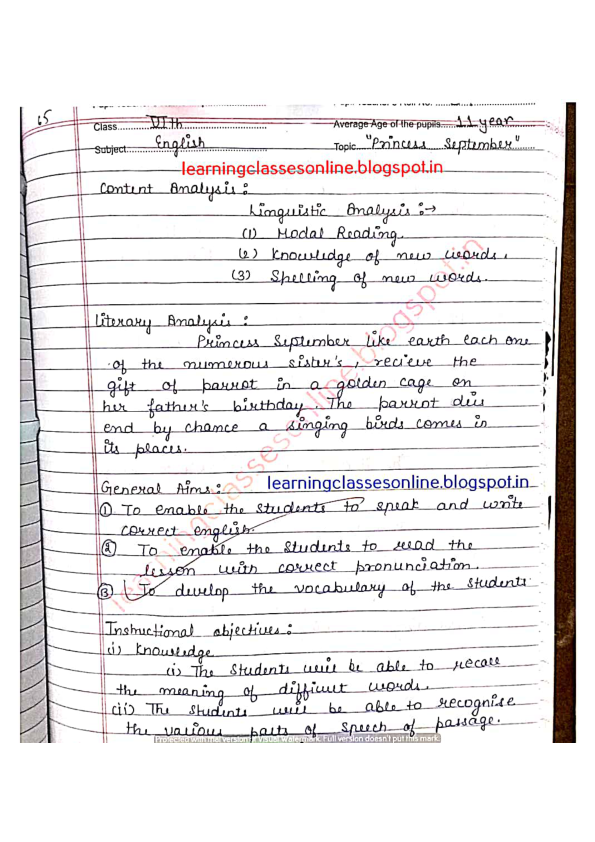 65
Class VIth Average Age of the pupils 11 year
Subject English Topic "Princess September"
learningclassesonline.blogspot.in
Content Analysis :
Linguistic Analysis :→
(1) Modal Reading.
(2) Knowledge of new words.
(3) Spelling of new words.
Literary Analysis :
Princess September like earth each one
of the numerous sister's, recieve the
gift of parrot in a golden cage on
her father's birthday The parrot dies
end by chance a singing birds comes in
its places.
General Aims :
learningclassesonline.blogspot.in
① To enable the students to speak and write
correct english.
② To enable the students to read the
lesson with correct pronunciation.
③ To develop the vocabulary of the students
Instructional objectives :
(i) Knowledge
(i) The students will be able to recall
the meaning of difficult words.
(ii) The students will be able to recognise
the various parts of speech of passage.
learningclassesonline.blogspot.in
Protected with free version of Visual Watermark. Full version doesn't put this mark.